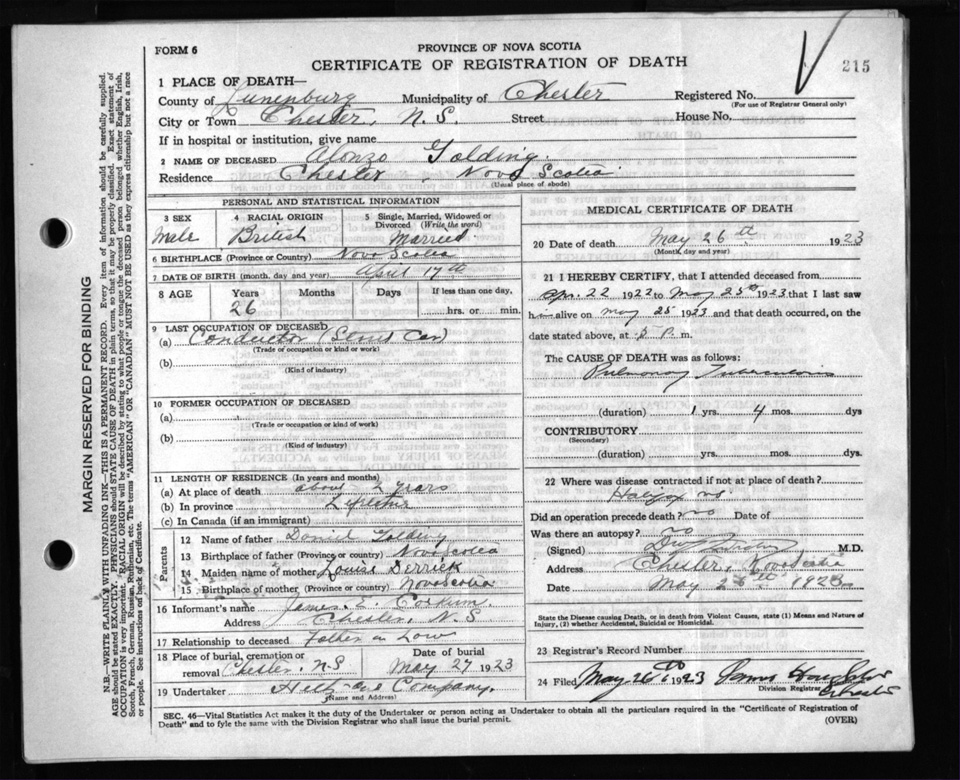 FORM 6
PROVINCE OF NOVA SCOTIA
CERTIFICATE OF REGISTRATION OF DEATH
215
1 PLACE OF DEATH—
County of Lunenburg Municipality of Chester Registered No.
(For use of Registrar General only)
City or Town Chester, N.S. Street House No.
If in hospital or institution, give name
2 NAME OF DECEASED Alonzo Golding
Residence Chester, Nova Scotia
(Usual place of abode)
PERSONAL AND STATISTICAL INFORMATION
3 SEX 4 RACIAL ORIGIN 5 Single, Married, Widowed or Divorced (Write the word)
Male British Married
6 BIRTHPLACE (Province or Country) Nova Scotia
7 DATE OF BIRTH (month, day and year) April 17th
8 AGE Years Months Days If less than one day,
26 hrs. or min.
9 LAST OCCUPATION OF DECEASED
(a) Conductor Car)
(Trade or occupation or kind or work)
(b)
(Kind of industry)
10 FORMER OCCUPATION OF DECEASED
(a)
(Trade or occupation or kind or work)
(b)
(Kind of industry)
11 LENGTH OF RESIDENCE (In years and months)
(a) At place of death about 2 years
(b) In province Lifetime
(c) In Canada (if an immigrant)
Parents
12 Name of father Daniel Golding
13 Birthplace of father (Province or country) Nova Scotia
14 Maiden name of mother Louise Derrick
15 Birthplace of mother (Province or country) Nova Scotia
16 Informant's name James C. Corkum
Address Chester, N.S.
17 Relationship to deceased Father in Law
18 Place of burial, cremation or removal Chester, N.S Date of burial May 27 1923
19 Undertaker and Company.
(Name and Address)
MEDICAL CERTIFICATE OF DEATH
20 Date of death May 26th 1923
(Month, day and year)
21 I HEREBY CERTIFY, that I attended deceased from
Apr. 22 1922 to May 25th 1923 that I last saw
him alive on May 25 1923 and that death occurred, on
date stated above, at 5 P. m.
The CAUSE OF DEATH was as follows:
Pulmonary Tuberculosis
(duration) 1 yrs. 4 mos. dys
CONTRIBUTORY
(Secondary)
(duration) yrs. mos. dys.
22 Where was disease contracted if not at place of death?
Halifax NS
Did an operation precede death? no Date of
Was there an autopsy? no
(Signed) M.D.
Address Chester, Nova Scotia
Date May 26th 1923
State the Disease causing Death, or in death from Violent Causes, state (1) Means and Nature of Injury, (2) whether Accidental, Suicidal or Homicidal.
23 Registrar's Record Number
24 Filed May 26th 1923
Division Registrar
Chester
SEC. 46—Vital Statistics Act makes it the duty of the Undertaker or person acting as Undertaker to obtain all the particulars required in the "Certificate of Registration of
Death" and to fyle the same with the Division Registrar who shall issue the burial permit.
(OVER)
MARGIN RESERVED FOR BINDING
N.B.—WRITE PLAINLY WITH UNFADING INK—THIS IS A PERMANENT RECORD. Every item of information should be carefully supplied.
AGE should be stated EXACTLY. PHYSICIANS should STATE CAUSE OF DEATH in plain terms, so that it may be properly classified. Exact statement of
OCCUPATION is very important. RACIAL ORIGIN will be described by stating to what people or tongue the deceased person belonged whether English, Irish,
Scotch, French, German, Russian, Ruthenian, etc. The terms "AMERICAN" OR "CANADIAN" MUST NOT BE USED as they express citizenship but not a race
or people. See instructions on back of Certificate.